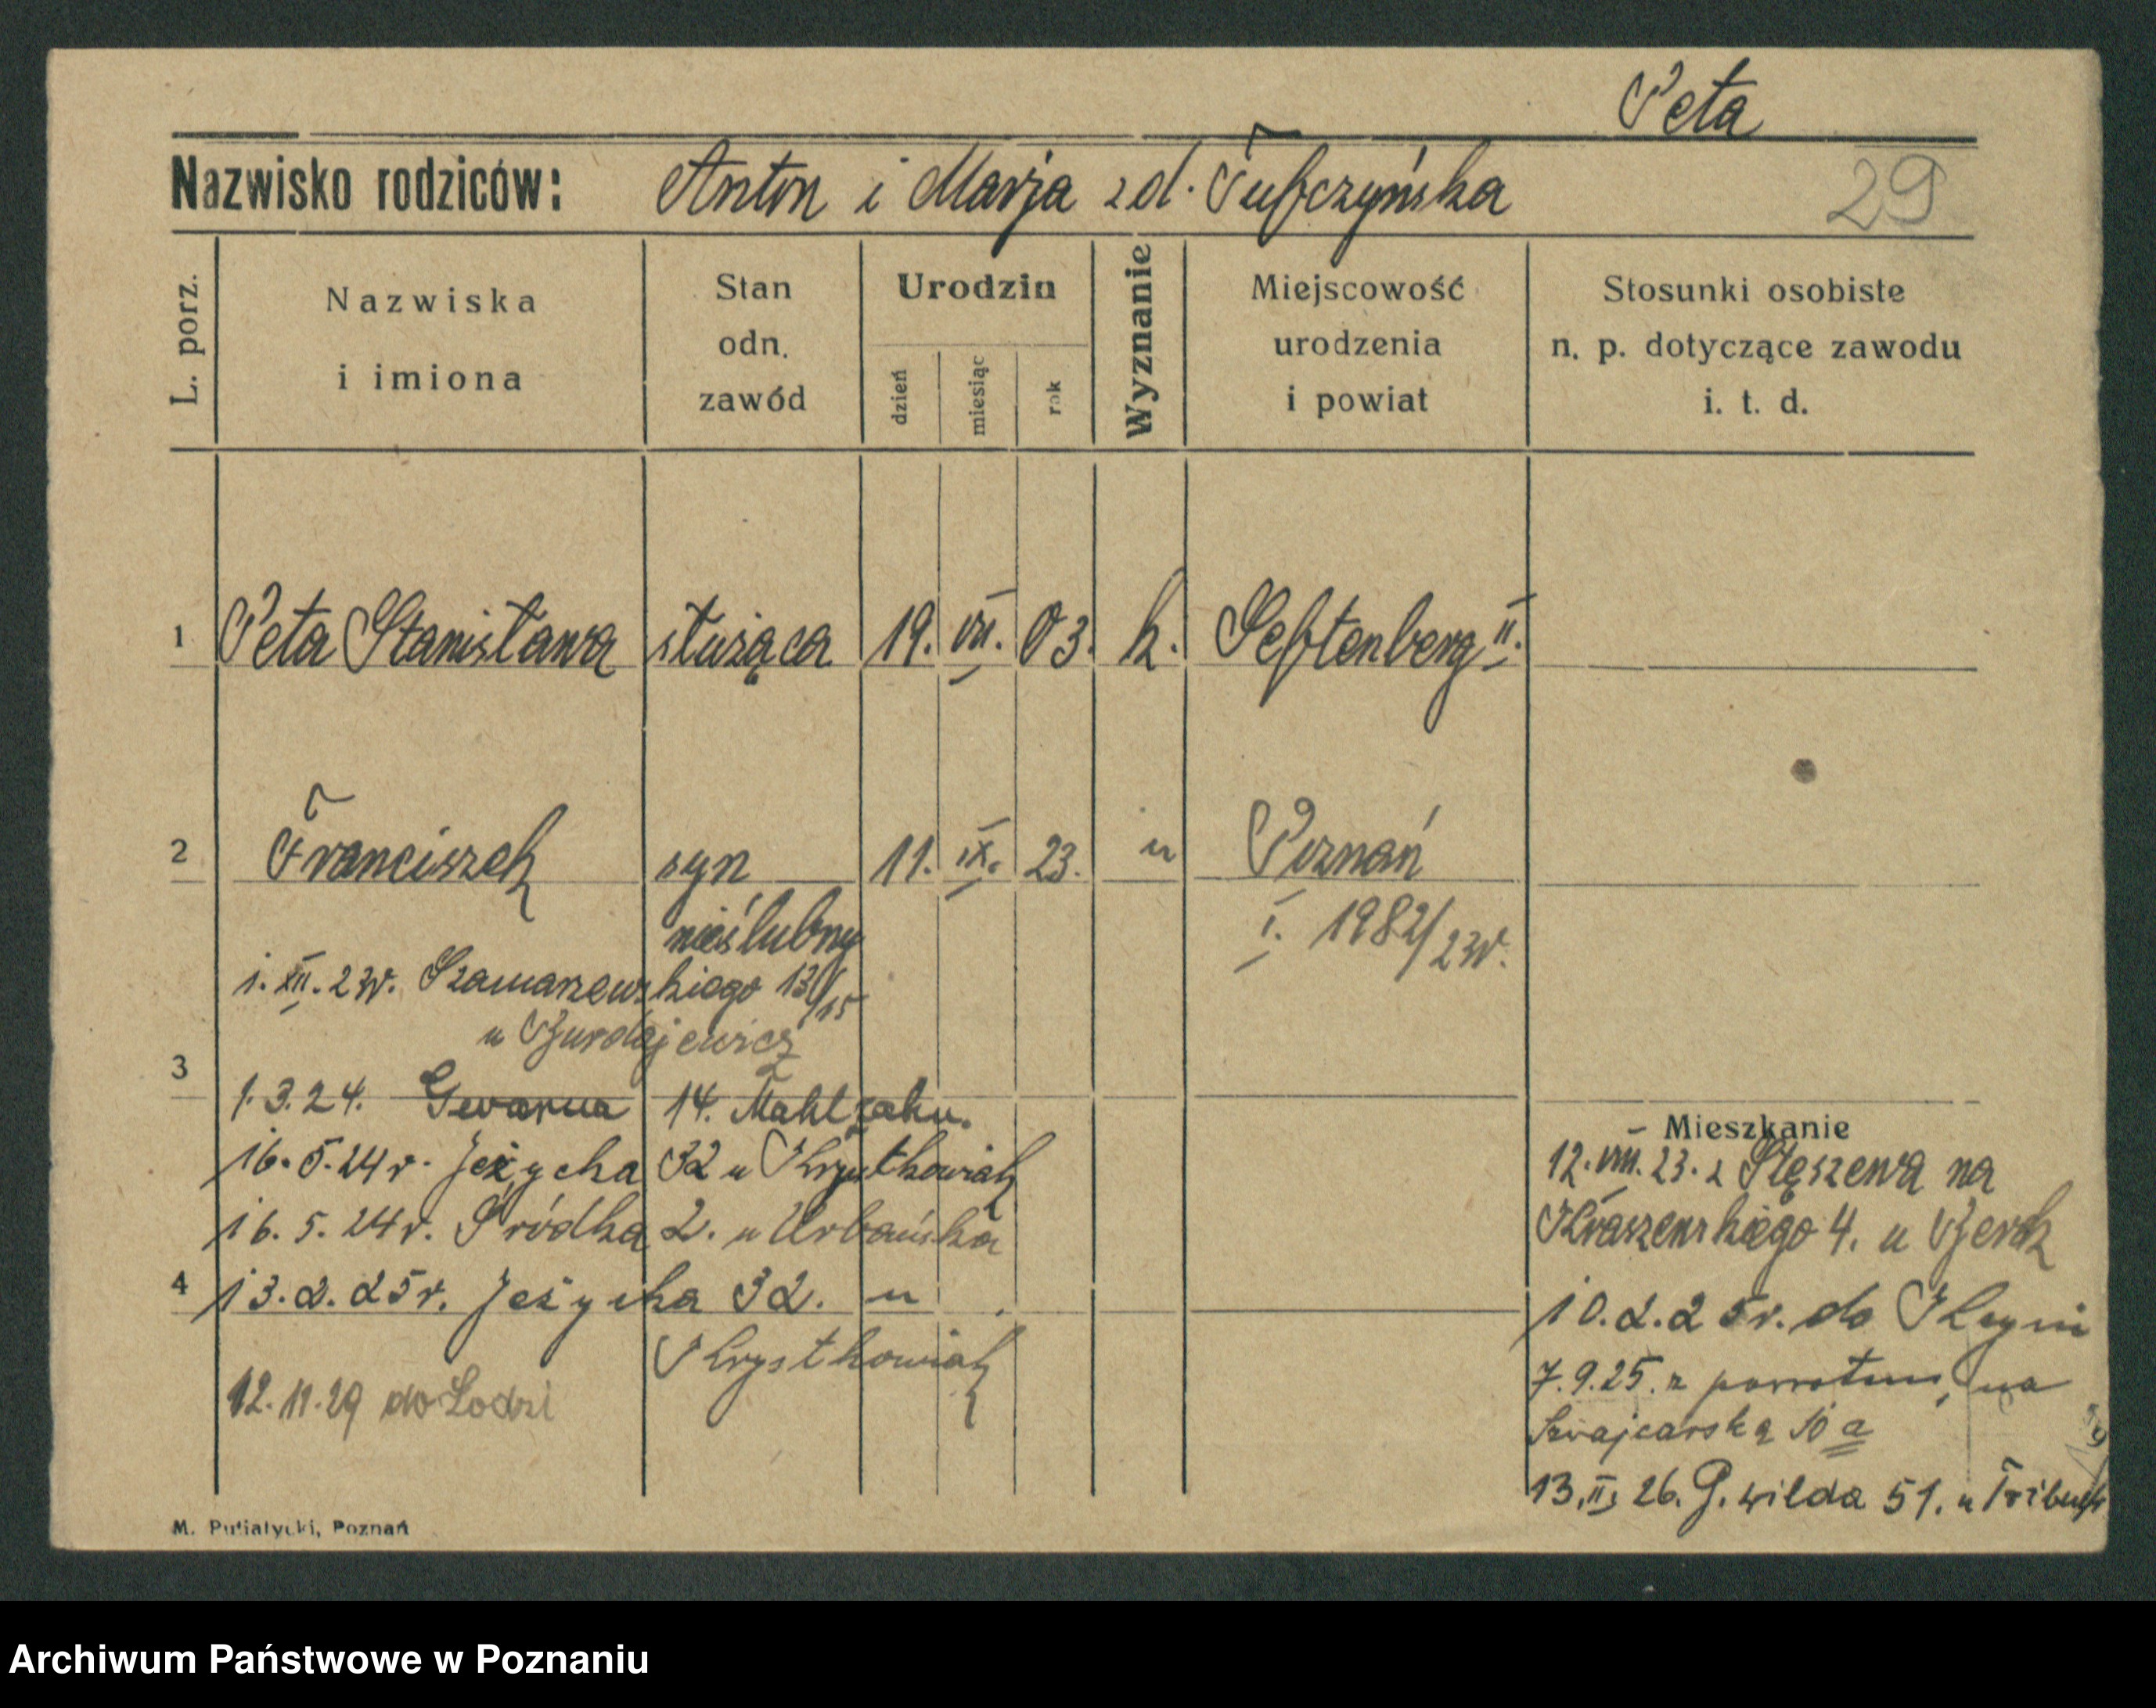 Peta
Nazwisko rodziców: Anton i Marja zd.
29
L. porz.
Nazwiska i imiona
Stan odn. zawód
Urodzin
dzień miesiąc rok
Wyznanie
Miejscowość urodzenia i powiat
Stosunki osobiste n. p. dotyczące zawodu i. t. d.
1 Peta Stanisława służąca 19. VII. 03. k. II.
2 Franciszek syn 11. IX. 23. " Poznań
nieślubny
I. 1982/23r.
1. XII. 23r. Szamarzewskiego 13/15
u
3
1.3.24. Gwarna 14.
16.5.24r. Jeżycka 32 u Krystkowiak
16.5.24r. Śródka 2. u Urbańska
4 13.2.25r. Jeżycka 32. u
Krystkowiak
12.11.29 do Łodzi
Mieszkanie
12. VIII. 23. z Stęszewa na
Kraszewskiego 4. u
10.2.25r. do Kcyni
7.9.25. z powrotem, na
Szwajcarska 10 a
13. II. 26. G. wilda 51. u
M. Putiatycki, Poznań
Archiwum Państwowe w Poznaniu